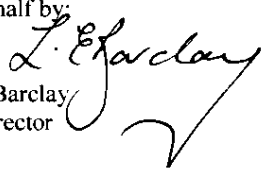 half by:
L. E Barclay
Barclay
rector